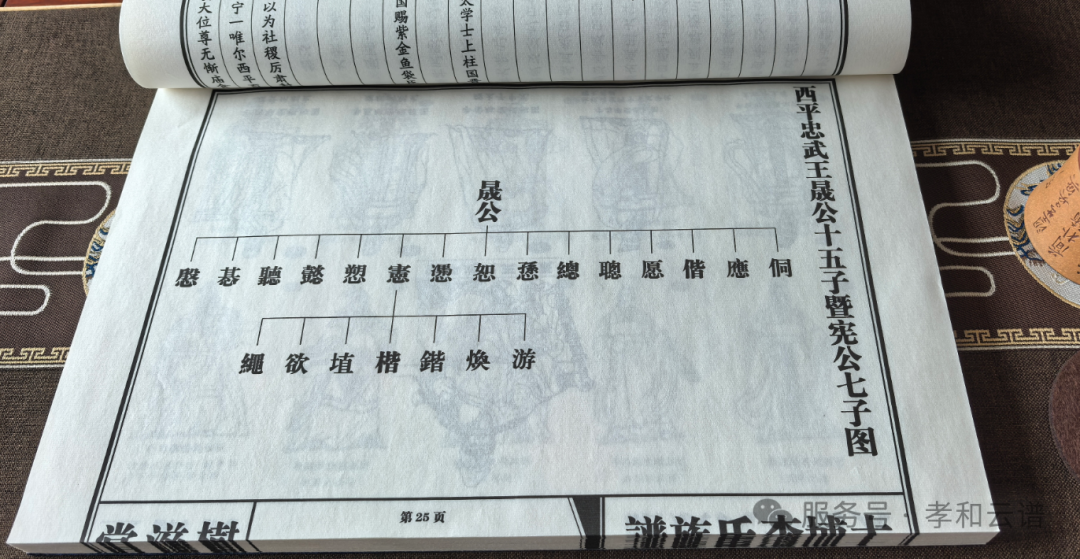 太学士上柱国
国赐紫金鱼袋
以为社稷厉
宁一唯尔西平
大位尊无惭
西平忠武王晟公十五子暨宪公七子图
晟公
侗 應 偕 愿 聰 總 愻 恕 憑 憲 愬 懿 聽 惎 慇
游 煥 鍇 楷 埴 欲 繩
第25页
樹滋堂
服务号 · 孝和云谱